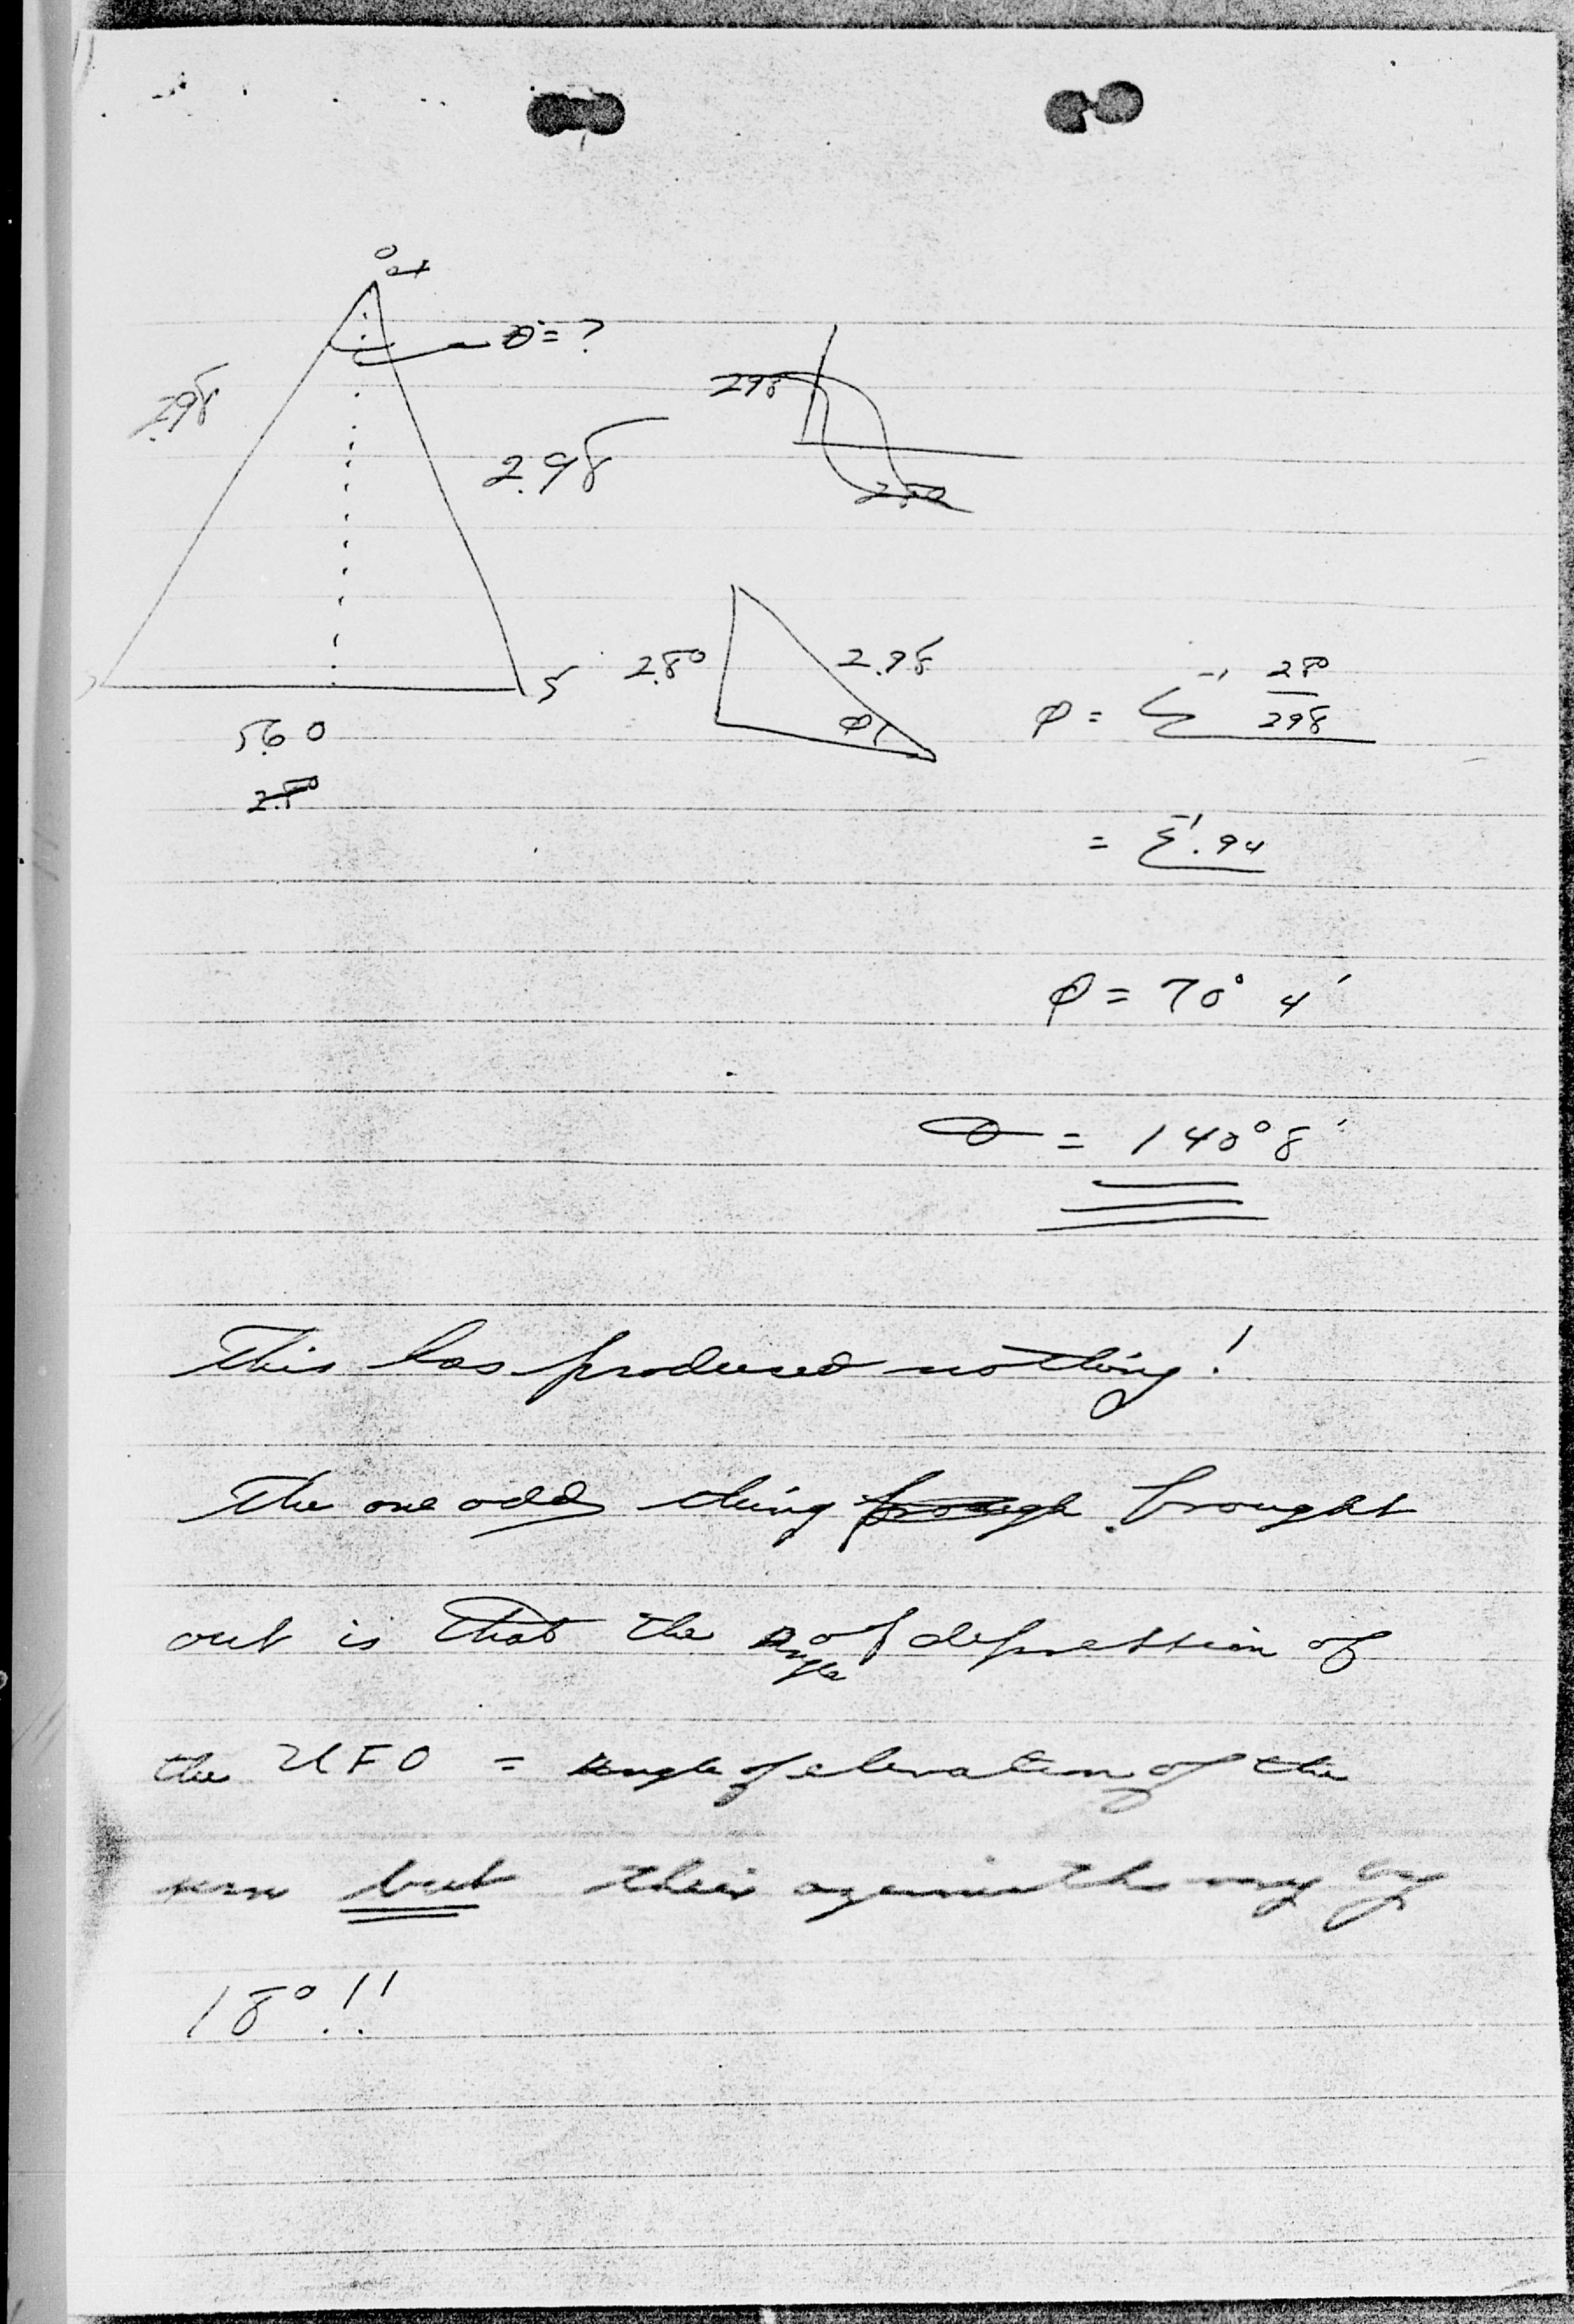 θ = ?
2.98
2.98
298
280
5
560
2.80
2.80
2.98
φ
φ = S⁻¹ 280/298
= S⁻¹ .94
φ = 70° 4'
θ = 140° 8'
This has produced nothing!
The one odd thing brough brought
out is that the angle of depression of
the UFO = angle of elevation of the
sun but their azimuths vary by
18°!!